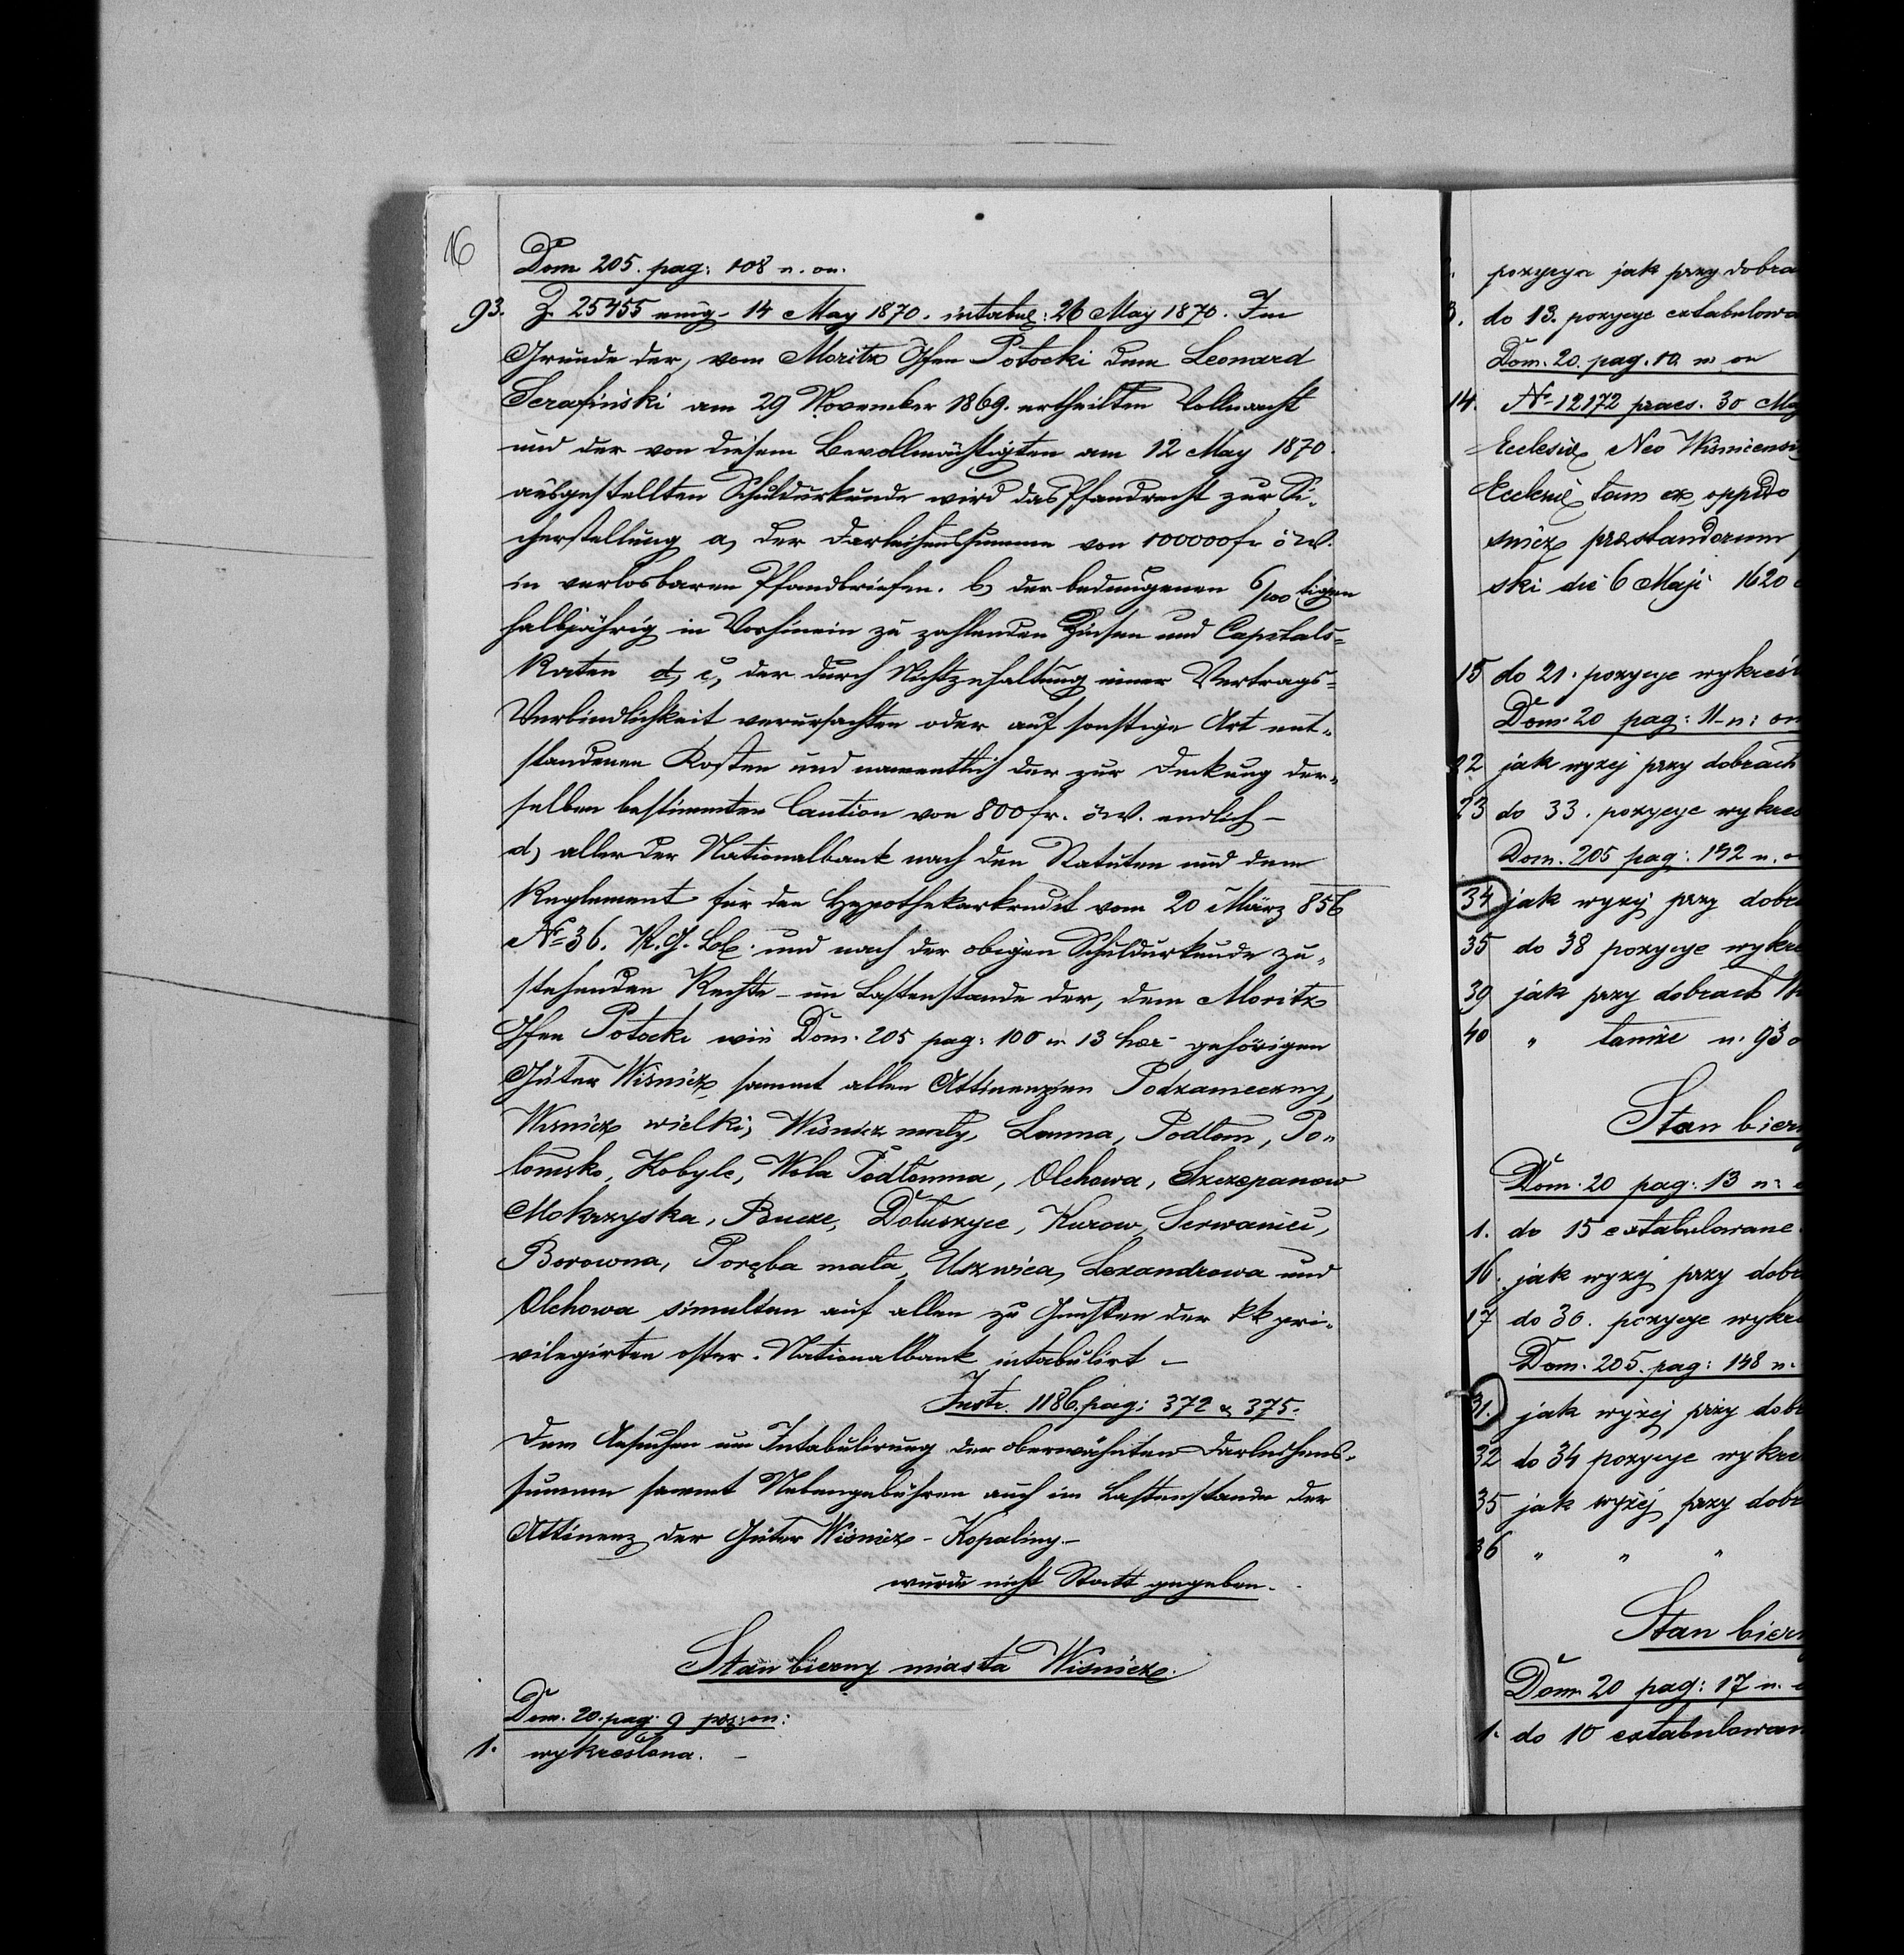 16
Dom 205. pag: 108 n. on.
93. Z. 25455 eing. 14 May 1870. intabul: 26 May 1870. Im
Grunde der, vom Moritz Gfen Potocki dem Leonard
Serafiński am 29 November 1869. ertheilten Vollmacht
und der von diesem Bevollmächtigten am 12 May 1870.
ausgestellten Schuldurkunde wird das Pfandrecht zur Si-
cherstellung a, der Darleihenssumme von 100000 fr öW.
in verlosbaren Pfandbriefen. b, der bedungenen 6/100 tigen
halbjährig in Vorhinein zu zahlenden Zinsen und Capitals-
Raten c, der durch Nichtzuhaltung einer Vertrags-
Verbindlichkeit verursachten oder auf sonstige Art ent-
standenen Kosten und namentlich der zur Deckung der-
selben bestimmten Caution von 800 fr. öW. endlich –
d, aller der Nationalbank nach den Statuten und dem
Reglement für den Hypothekarkredit vom 20 März 856
No 36. R. G. Bl. und nach der obigen Schuldurkunde zu-
stehenden Rechte – im Lastenstande der, dem Moritz
Gfen Potocki wie Dom. 205 pag: 100 n 13 haer gehörigen
Güter Wiśnicz, sammt allen Attinenzien Podzameczny,
Wisnicz wielki, Wiśnicz maly, Lomna, Podlom, Po-
lomsko, Kobyle, Wola Podlomna, Olchowa, Szczepanow
Mokrzyska, Bucze, Dołuszyce, Kurow, Serwaniec,
Borowna, Poręba mala, Uszwica, Lexandrowa und
Olchowa simultan auf allen zu Gunsten der kk pri-
vilegirten oster. Nationalbank intabulirt –
Instr. 1186. pag: 372 & 375.
Dem Ansuchen um Intabulirung der oberwähnten Darleihens-
summe sammt Nebengebühren auch im Lastenstande der
Attinenz der Güter Wiśnicz – Kopaliny –
wurde nicht Statt gegeben.
Stan bierny miasta Wisnicza.
Dom. 20. pag. 9 poz: on:
1. wykreślona. –
pozycye jak przy dobra
do 13. pozycye extabulowa
Dom. 20. pag. 10. n. on
14. No 12172 praes. 30 May
Ecclesiæ Neo Wisnicensi
Ecclesiæ tam ex oppido
snicz præstandorum
ski die 6 Maji 1620
15 do 21. pozycye wykreśl
Dom. 20 pag: 11 n: on
22 jak wyzej przy dobrach
23 do 33. pozycye wykres
Dom. 205 pag: 142 n. o
34 jak wyzej przy dobr
35 do 38 pozycye wykre
39 jak przy dobrach
40 " tamże n. 93 o
Stan biern
Dom. 20 pag: 13 n.
1. do 15 extabulowane
16. jak wyzej przy dobr
17 do 30. pozycye wykre
Dom. 205. pag: 148 n.
31. jak wyżej przy dobr
32 do 34 pozycye wykre
35 jak wyżej przy dobr
36 " " "
Stan biern
Dom. 20 pag: 17 n.
1. do 10 extabulowan